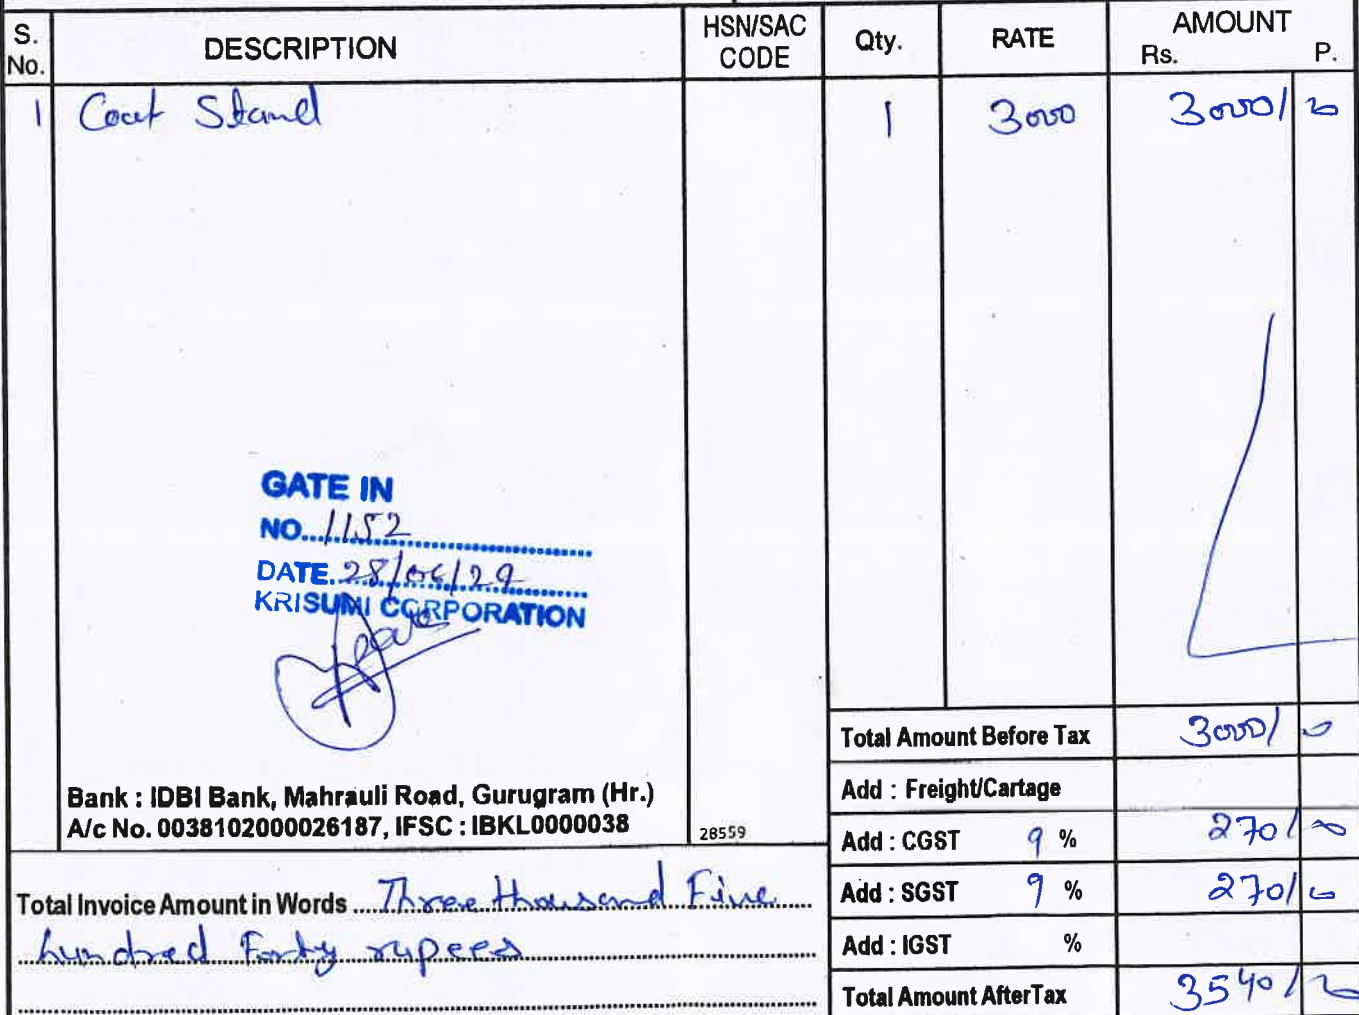 S. No. DESCRIPTION HSN/SAC CODE Qty. RATE AMOUNT Rs. P.
1 Coat Stand 1 3000 3000/
GATE IN
NO. 1152
DATE. 28/06/24
KRISUMI CORPORATION
Bank : IDBI Bank, Mahrauli Road, Gurugram (Hr.)
A/c No. 0038102000026187, IFSC : IBKL0000038
28559
Total Amount Before Tax 3000/
Add : Freight/Cartage
Add : CGST 9 % 270/
Add : SGST 9 % 270/
Add : IGST %
Total Amount AfterTax 3540/
Total Invoice Amount in Words Three thousand Five
hundred Forty rupees